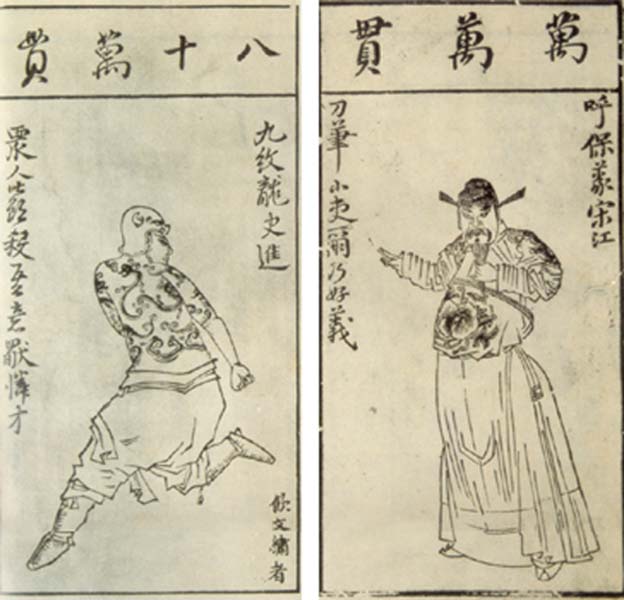 萬萬貫
呼保義宋江
刀筆小吏爾乃好義
八十萬貫
九紋龍史進
眾人皆欲殺吾意獨憐才
文者